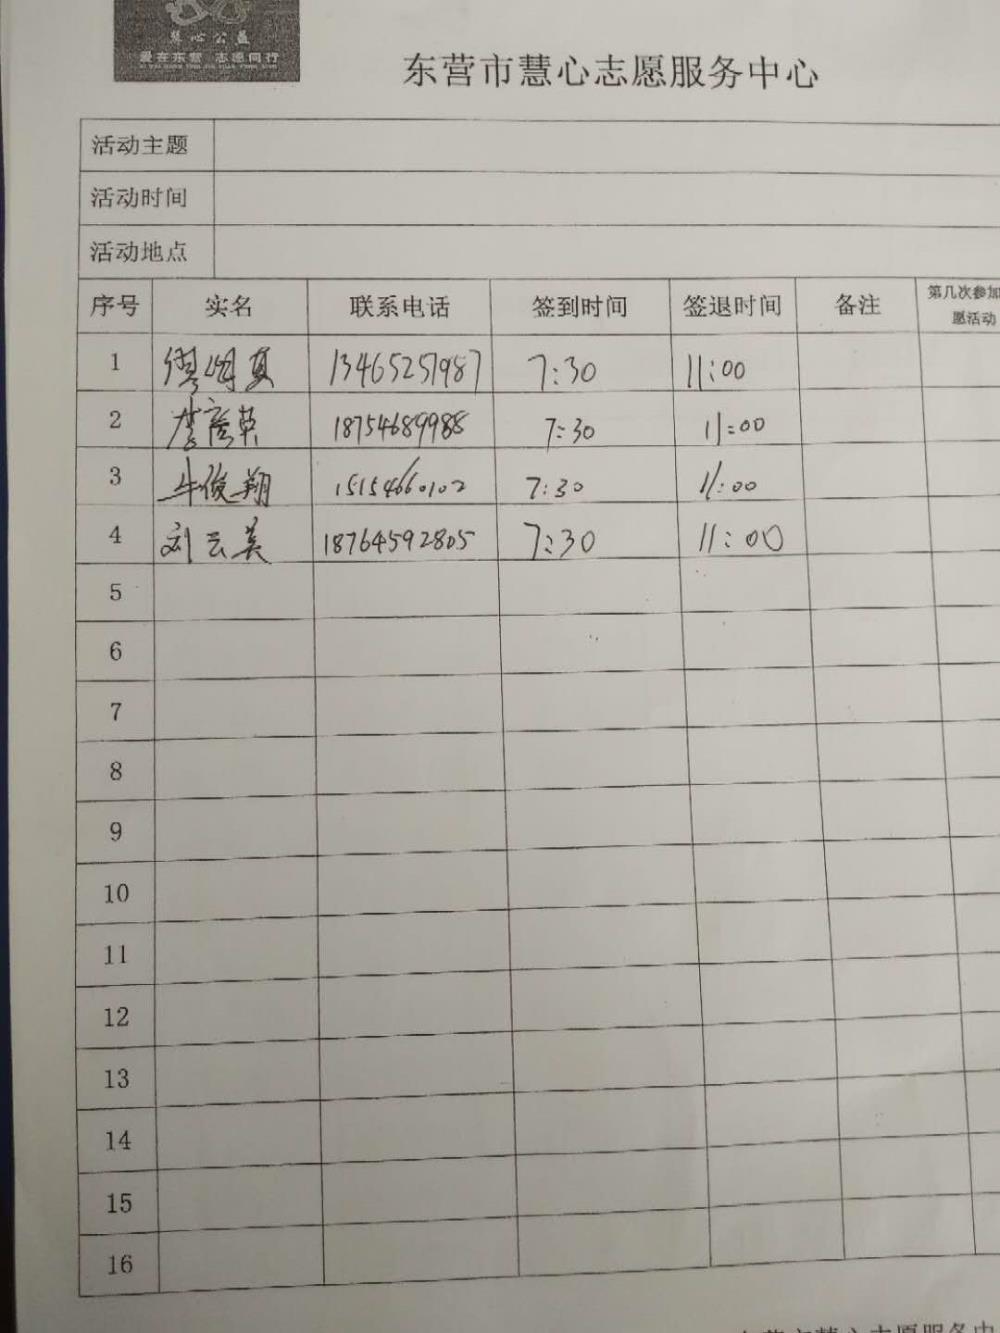 慧心公益
爱在东营 志愿同行
东营市慧心志愿服务中心
活动主题
活动时间
活动地点
序号 实名 联系电话 签到时间 签退时间 备注 第几次参加
愿活动
1 13465257987 7:30 11:00
2 18754689988 7:30 11:00
3 牛俊翔 15154660102 7:30 11:00
4 刘云英 18764592805 7:30 11:00
5
6
7
8
9
10
11
12
13
14
15
16
东营市慧心志愿服务中